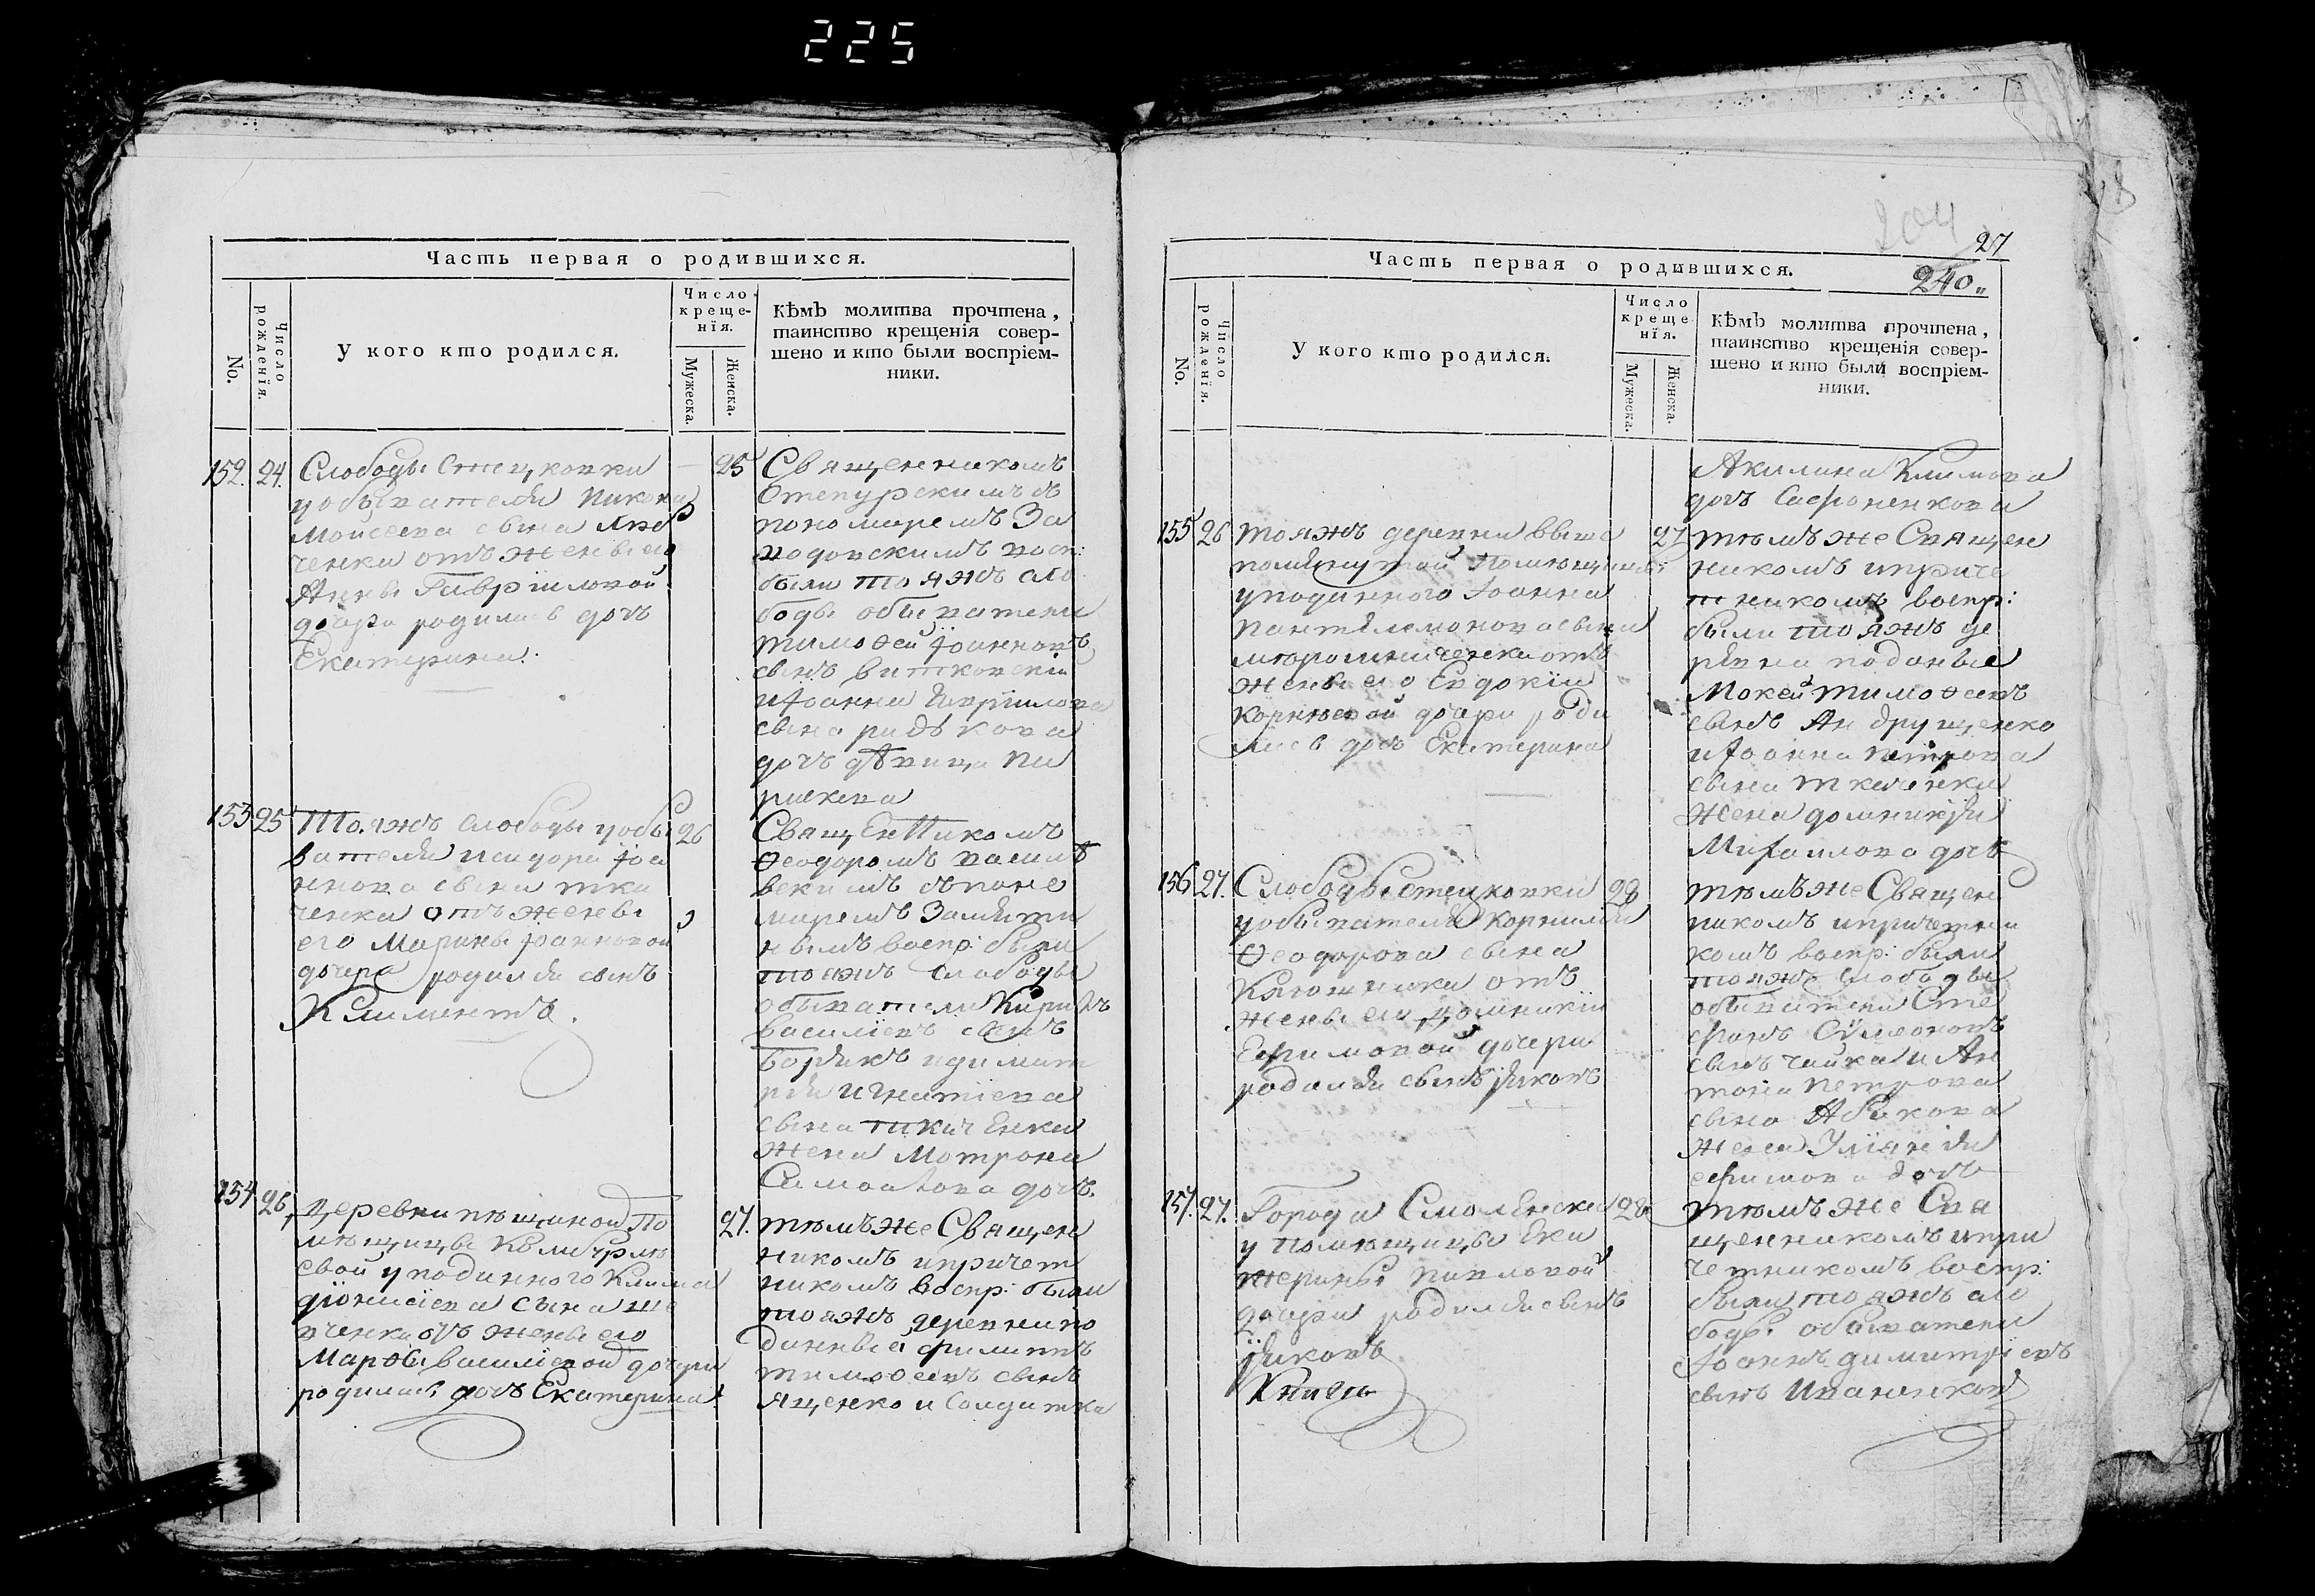 225
Часть первая о родившихся.
No.
Число рожденія.
У кого кто родился.
Число
креще-
нія.
Мужеска.
Женска.
Кѣмъ молитва прочтена,
таинство крещенія совер-
шено и кто были воспріем-
ники.
152. 24. Слободы Стецковки
уобывателя Никона
Моисеева сына
ченки отъ жены его
Анны Гаврииловой
дочери родилась дочь
Екатерина.
25
Священникомъ
съ
пономаремъ За
водовскимъ восп:
были тояжъ сло
боды обыватели
тимоѳей Іоанновъ
сынъ витковскій
иІоанна Гавриилова
сына
дочь дѣвица Па
раскева
153 25 Тояжъ слободы уобы
вателя исидора Іоа
ннова сына тка
ченки отъ жены
его Марины Іоанновой
дочери родился сынъ
Климентъ.
26
СващЕнНикомъ
Ѳеодоромъ
съпоно
маремъ
воспр: были
тояжъ Слободы
обыватели
василіевъ сынъ
идимит
рія игнатіева
сына ткачЕнки
жена Мотрона
дочь.
154 26, деревни По
мѣщицы
уподаннаго Клима
діонисіева сына ше
вченки отъ жены его
Марѳы василіевой дочери
родилась дочь Екатерина
27. тѣмъже Священ
никомъ ипричет
никомъ воспр: были
тояжъ деревни по
данные филиппъ
тимоѳеевъ сынъ
ященко и Солдатка
204
27
Часть первая о родившихся.
240„
No.
Число рожденія.
У кого кто родился.
Число
креще
нія.
Мужеска.
Женска.
Кѣмъ молитва прочтена,
таинство крещенія совер-
шено и кто были воспріем-
ники.
Акилина Климова
дочь Сафроненкова
155 26 тояжъ деревни ввыше
помянутой Помѣщицы
уподаннаго Іоанна
Пантелемонова сына
отъ
жены его Евдокіи
Корнѣевой дочери роди
лась дочь Екатерина
27 тѣмъже Священ
никомъ иприче
тникомъ воспр:
были тояжъ де
ревни поданые
Мокей тимоѳеевъ
сынъ Андрущенко
иІоанна петрова
сына ткаченки
жена домникія
Михаилова дочь
156 27. Слободы стецковки
уобывателя Корнилія
Ѳеодорова сына
отъ
жены его домникіи
Ефимовой дочери
родился сынъ яковъ
28
тѣмъже Священ
никомъ ипричетни
комъ воспр: были
тояжъ Слободы
обыватели Сте
фанъ Симеоновъ
сынъ чайка и Ан
тона петрова
сына
жена Уліянія
ефимова дочь
157. 27. Города Смоленска
у помѣщицы Ека
терины павловой
дочери родился сынъ
яковъ
28 тѣмъже Свя
щенникомъ ипри
четникомъ воспр:
были тояжъ сло
боды обыватели
Іоаннъ димитріевъ
сынъ Иваненковъ